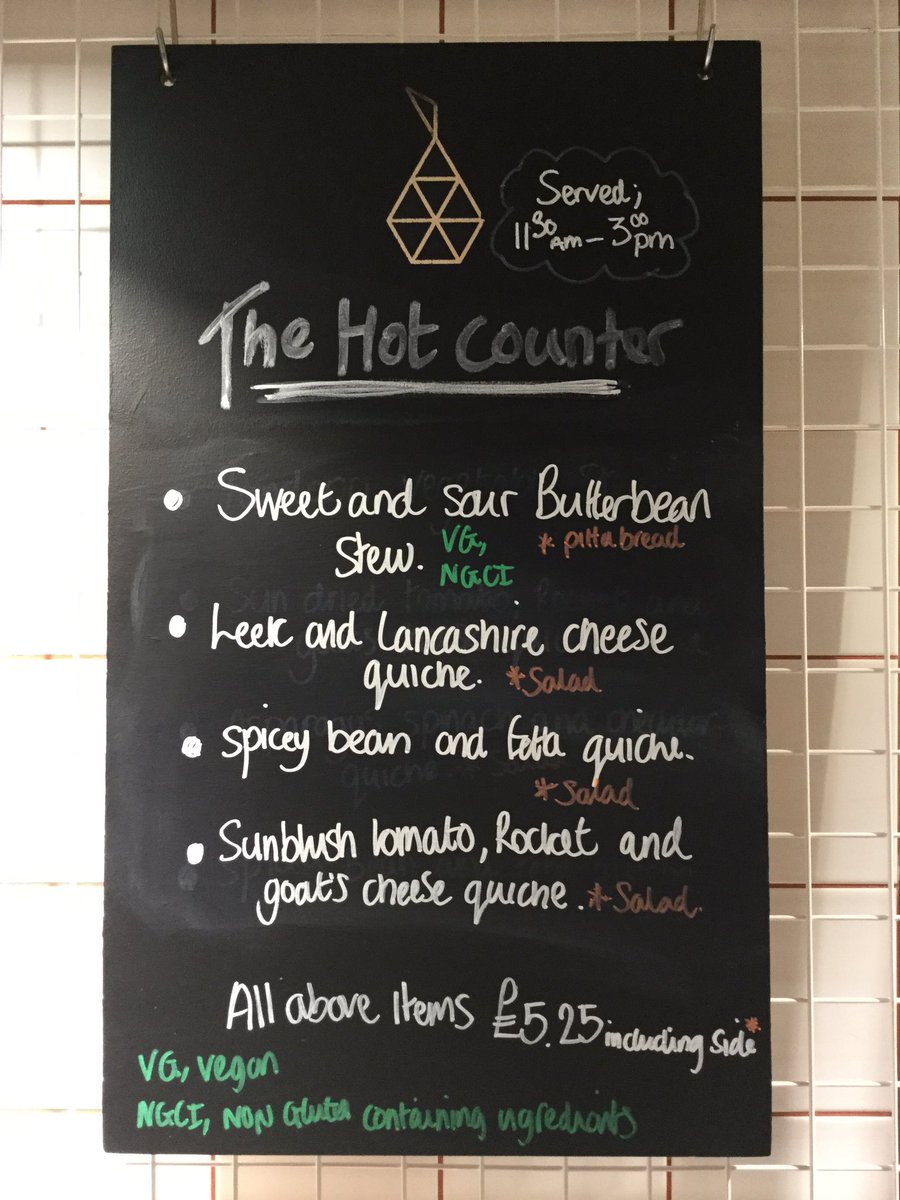 Served;
11 30 AM - 3 00 pm
The Hot Counter
• Sweet and sour Butterbean
stew. VG, * pitta bread
NGCI
• Leek and Lancashire cheese
quiche. *Salad
• spicey bean and fetta quiche.
*Salad
• Sunblush tomato, Rocket and
goat's cheese quiche. *Salad.
All above items £5.25 including side*
VG, vegan
NGCI, NON Gluten containing ingredients